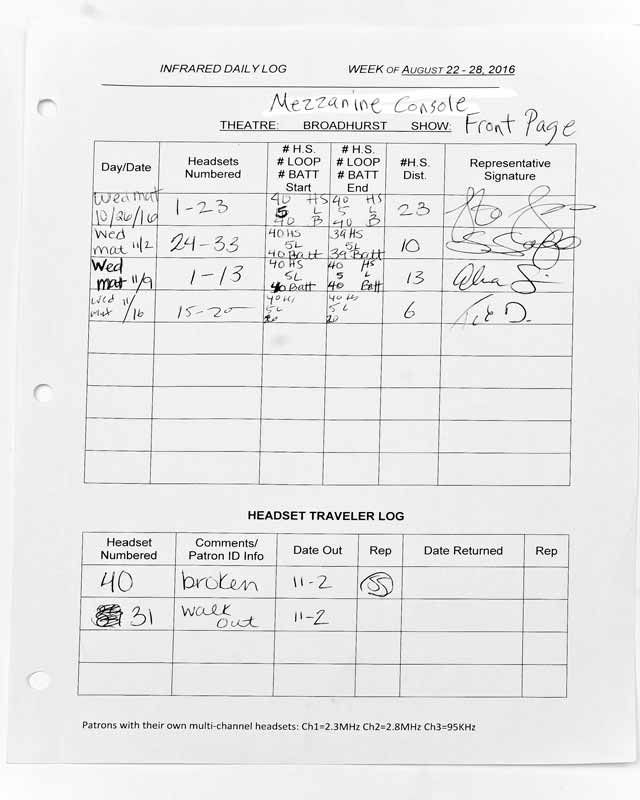 INFRARED DAILY LOG WEEK OF AUGUST 22 - 28, 2016
Mezzanine Console
THEATRE: BROADHURST SHOW: Front Page
Day/Date
Headsets
Numbered
# H.S.
# LOOP
# BATT
Start
# H.S.
# LOOP
# BATT
End
#H.S.
Dist.
Representative
Signature
Wed mat
10/26/16
1-23
40 HS
5 L
40 B
40 HS
5 L
40 B
23
Wed
mat 11/2
24-33
40 HS
5L
40 Batt
39 HS
5L
39 Batt
10
Wed
mat 11/9
1-13
40 HS
5L
40 Batt
40 HS
5 L
40 Batt
13
Wed 11/16
mat
15-20
40 HS
5L
20
40 HS
5L
20
6
HEADSET TRAVELER LOG
Headset
Numbered
Comments/
Patron ID Info
Date Out
Rep
Date Returned
Rep
40
broken
11-2
SS
31
walk
out
11-2
Patrons with their own multi-channel headsets: Ch1=2.3MHz Ch2=2.8MHz Ch3=95KHz